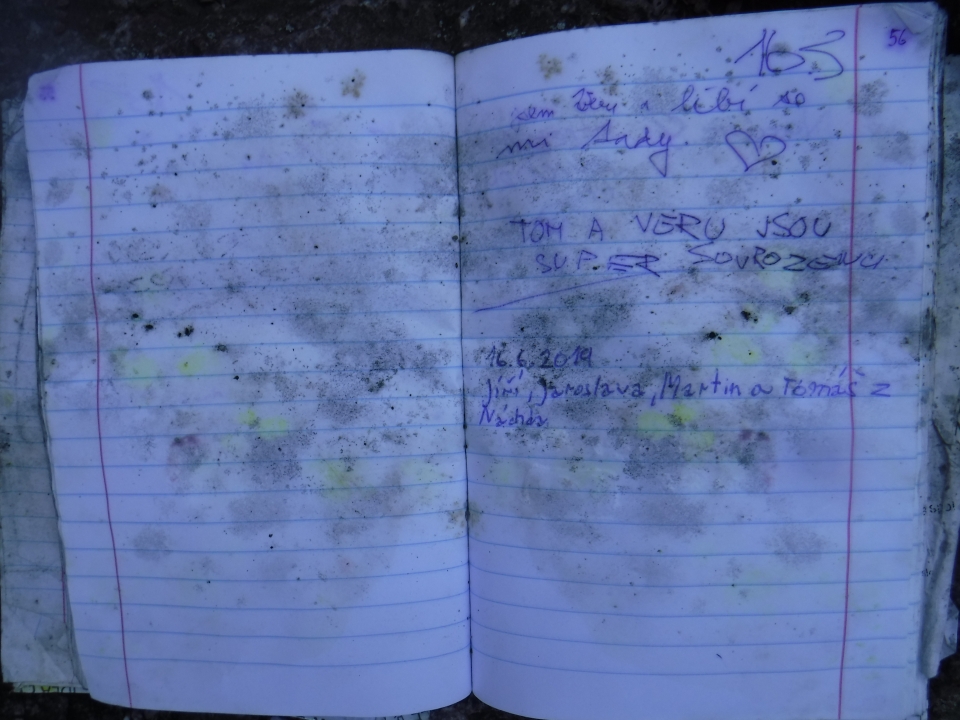 56
16.5
jsem Veru a líbí se
mi tady.
TOM A VERU JSOU
SUPER SOUROZENCI
16.6.2019
Jiří, Jaroslava, Martin a Tomáš z